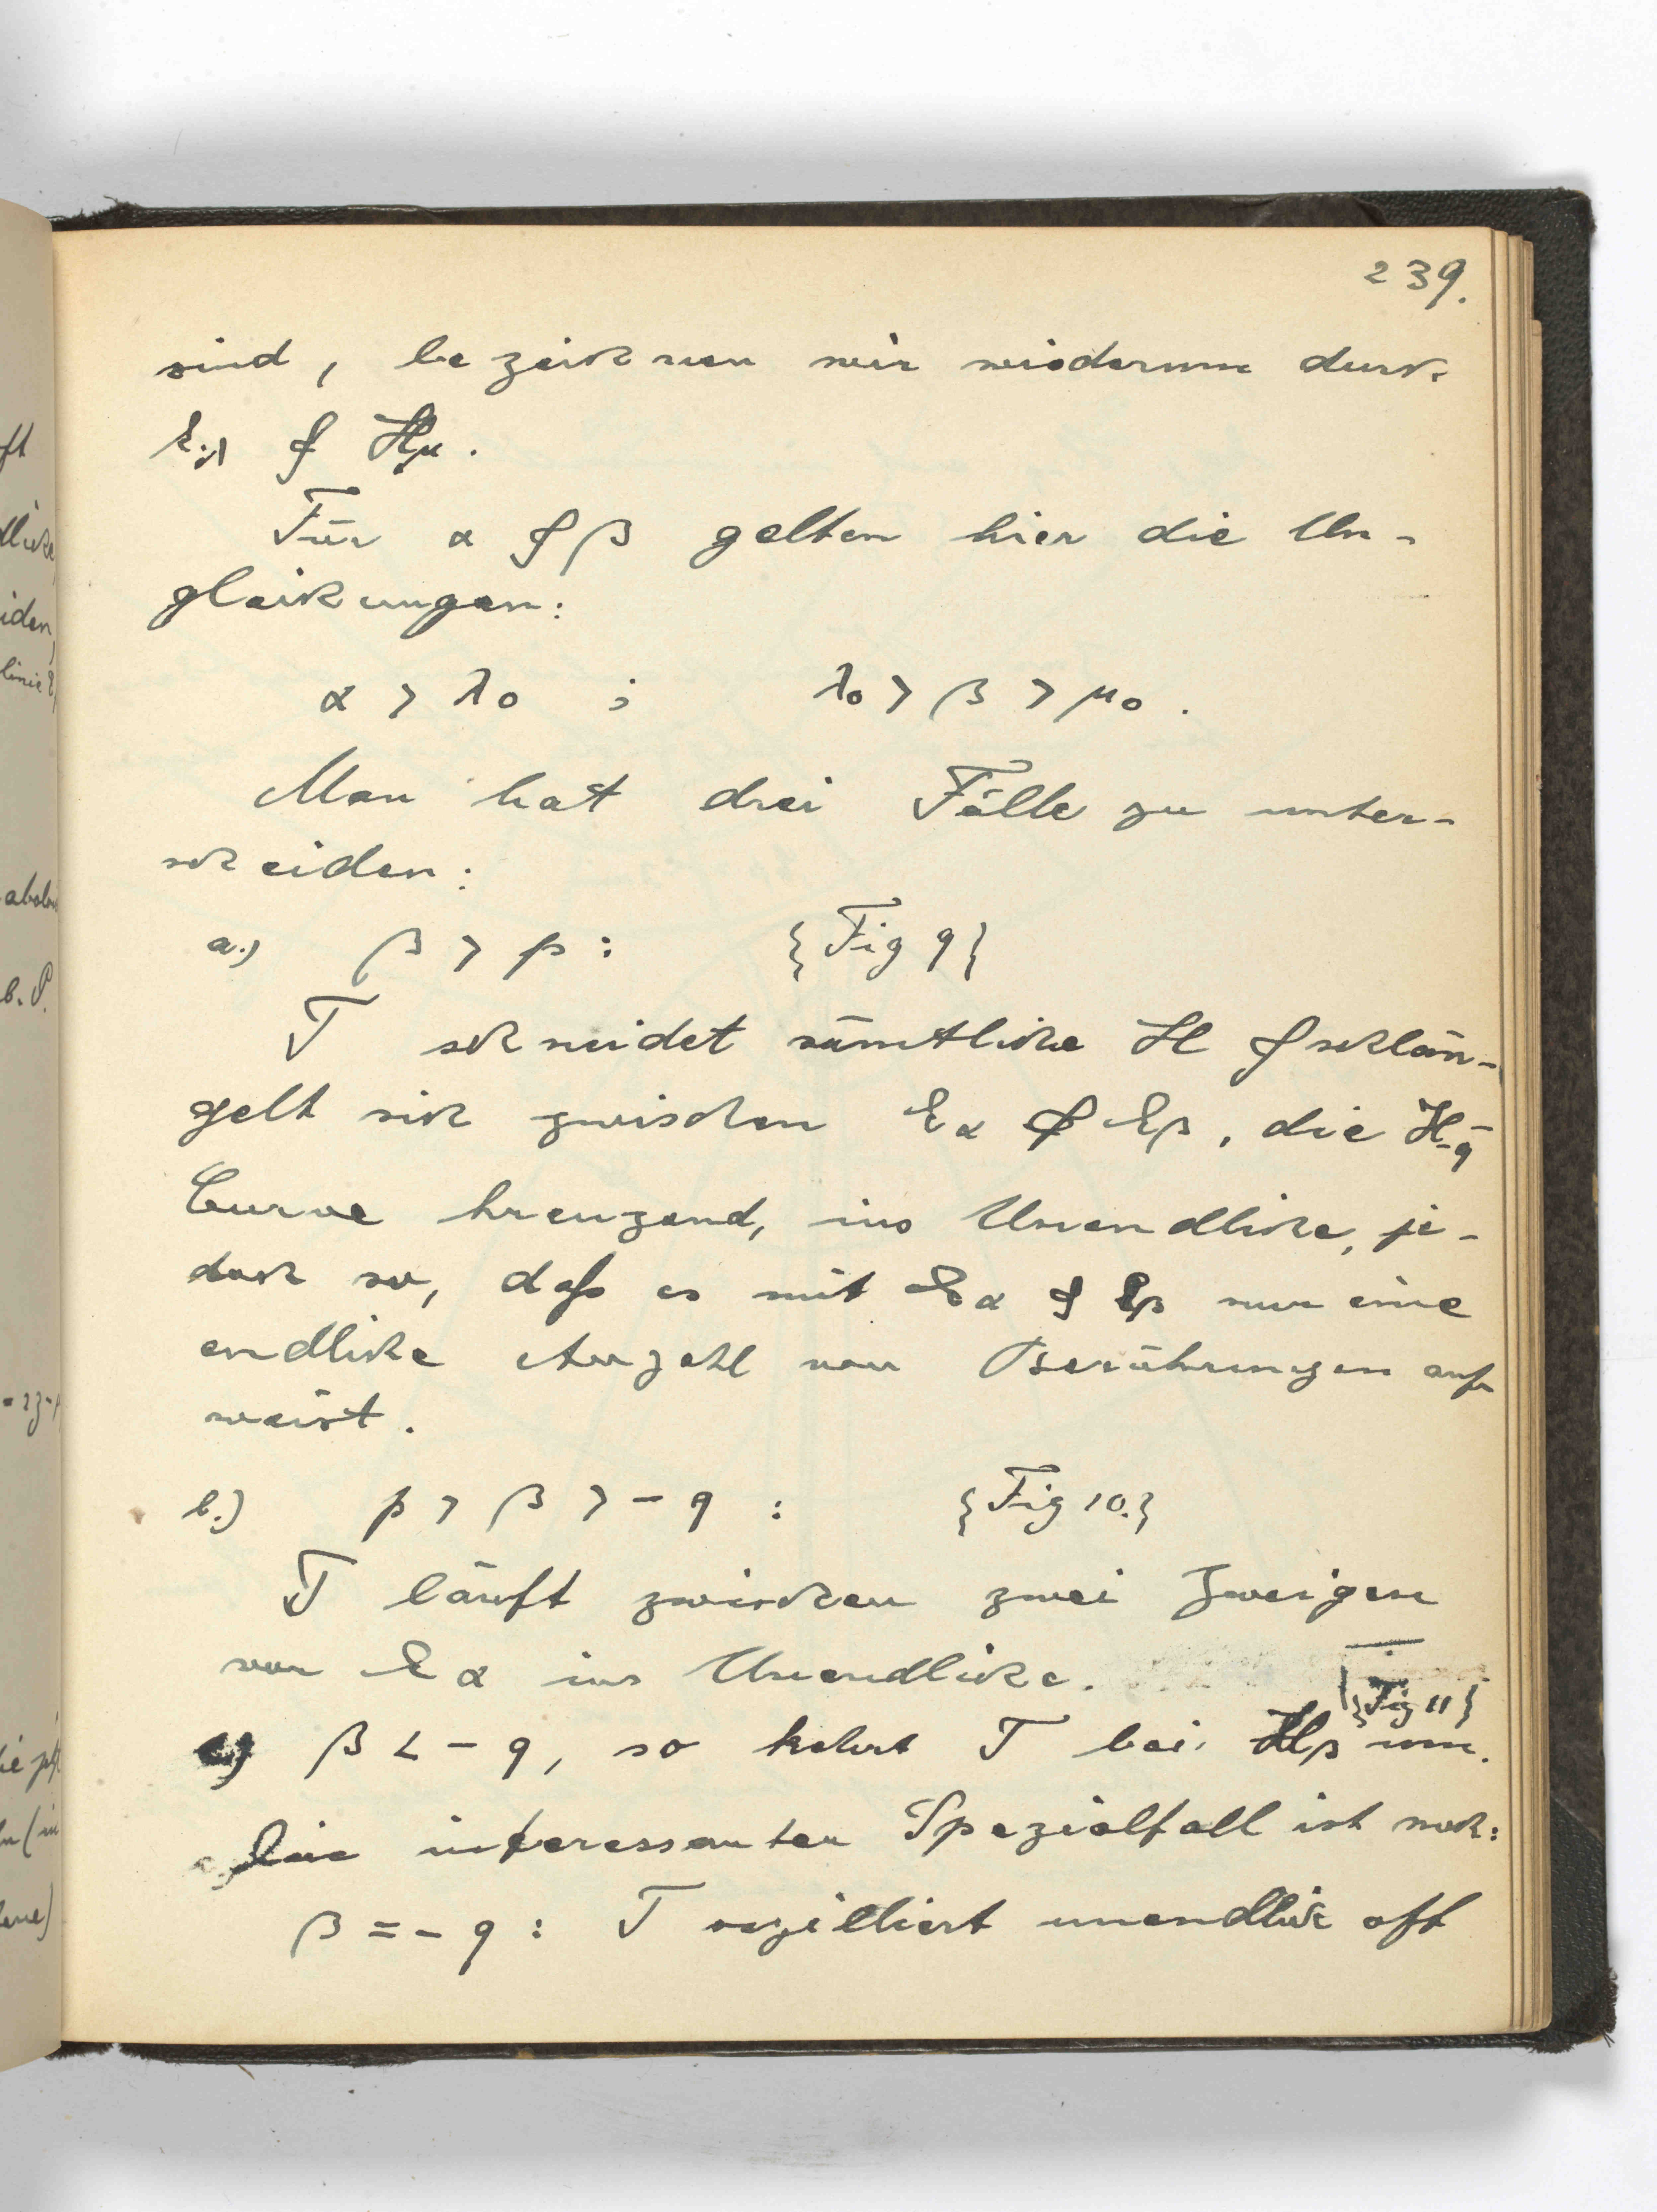 239.
sind, bezeichnen wir wiederum durch
Eλ & Hμ.
Für α & β gelten hier die Un-
gleichungen:
α > λ0 ; λ0 > β > μ0.
Man hat drei Fälle zu unter-
scheiden:
a.) β > p : {Fig 9}
T schneidet sämtliche H & schlän-
gelt sich zwischen Eα & Eβ, die H-q-
Curve kreuzend, ins Unendliche, je-
doch so, daß es mit Eα & Eβ nur eine
endliche Anzahl von Berührungen auf-
weist.
b.) p > β > - q : {Fig 10.}
T läuft zwischen zwei Zweigen
von Eα ins Unendliche.
{Fig 11}
c) β < - q, so kehrt T bei Hβ um.
Ein interessanter Spezialfall ist noch:
β = - q : T oszilliert unendlich oft